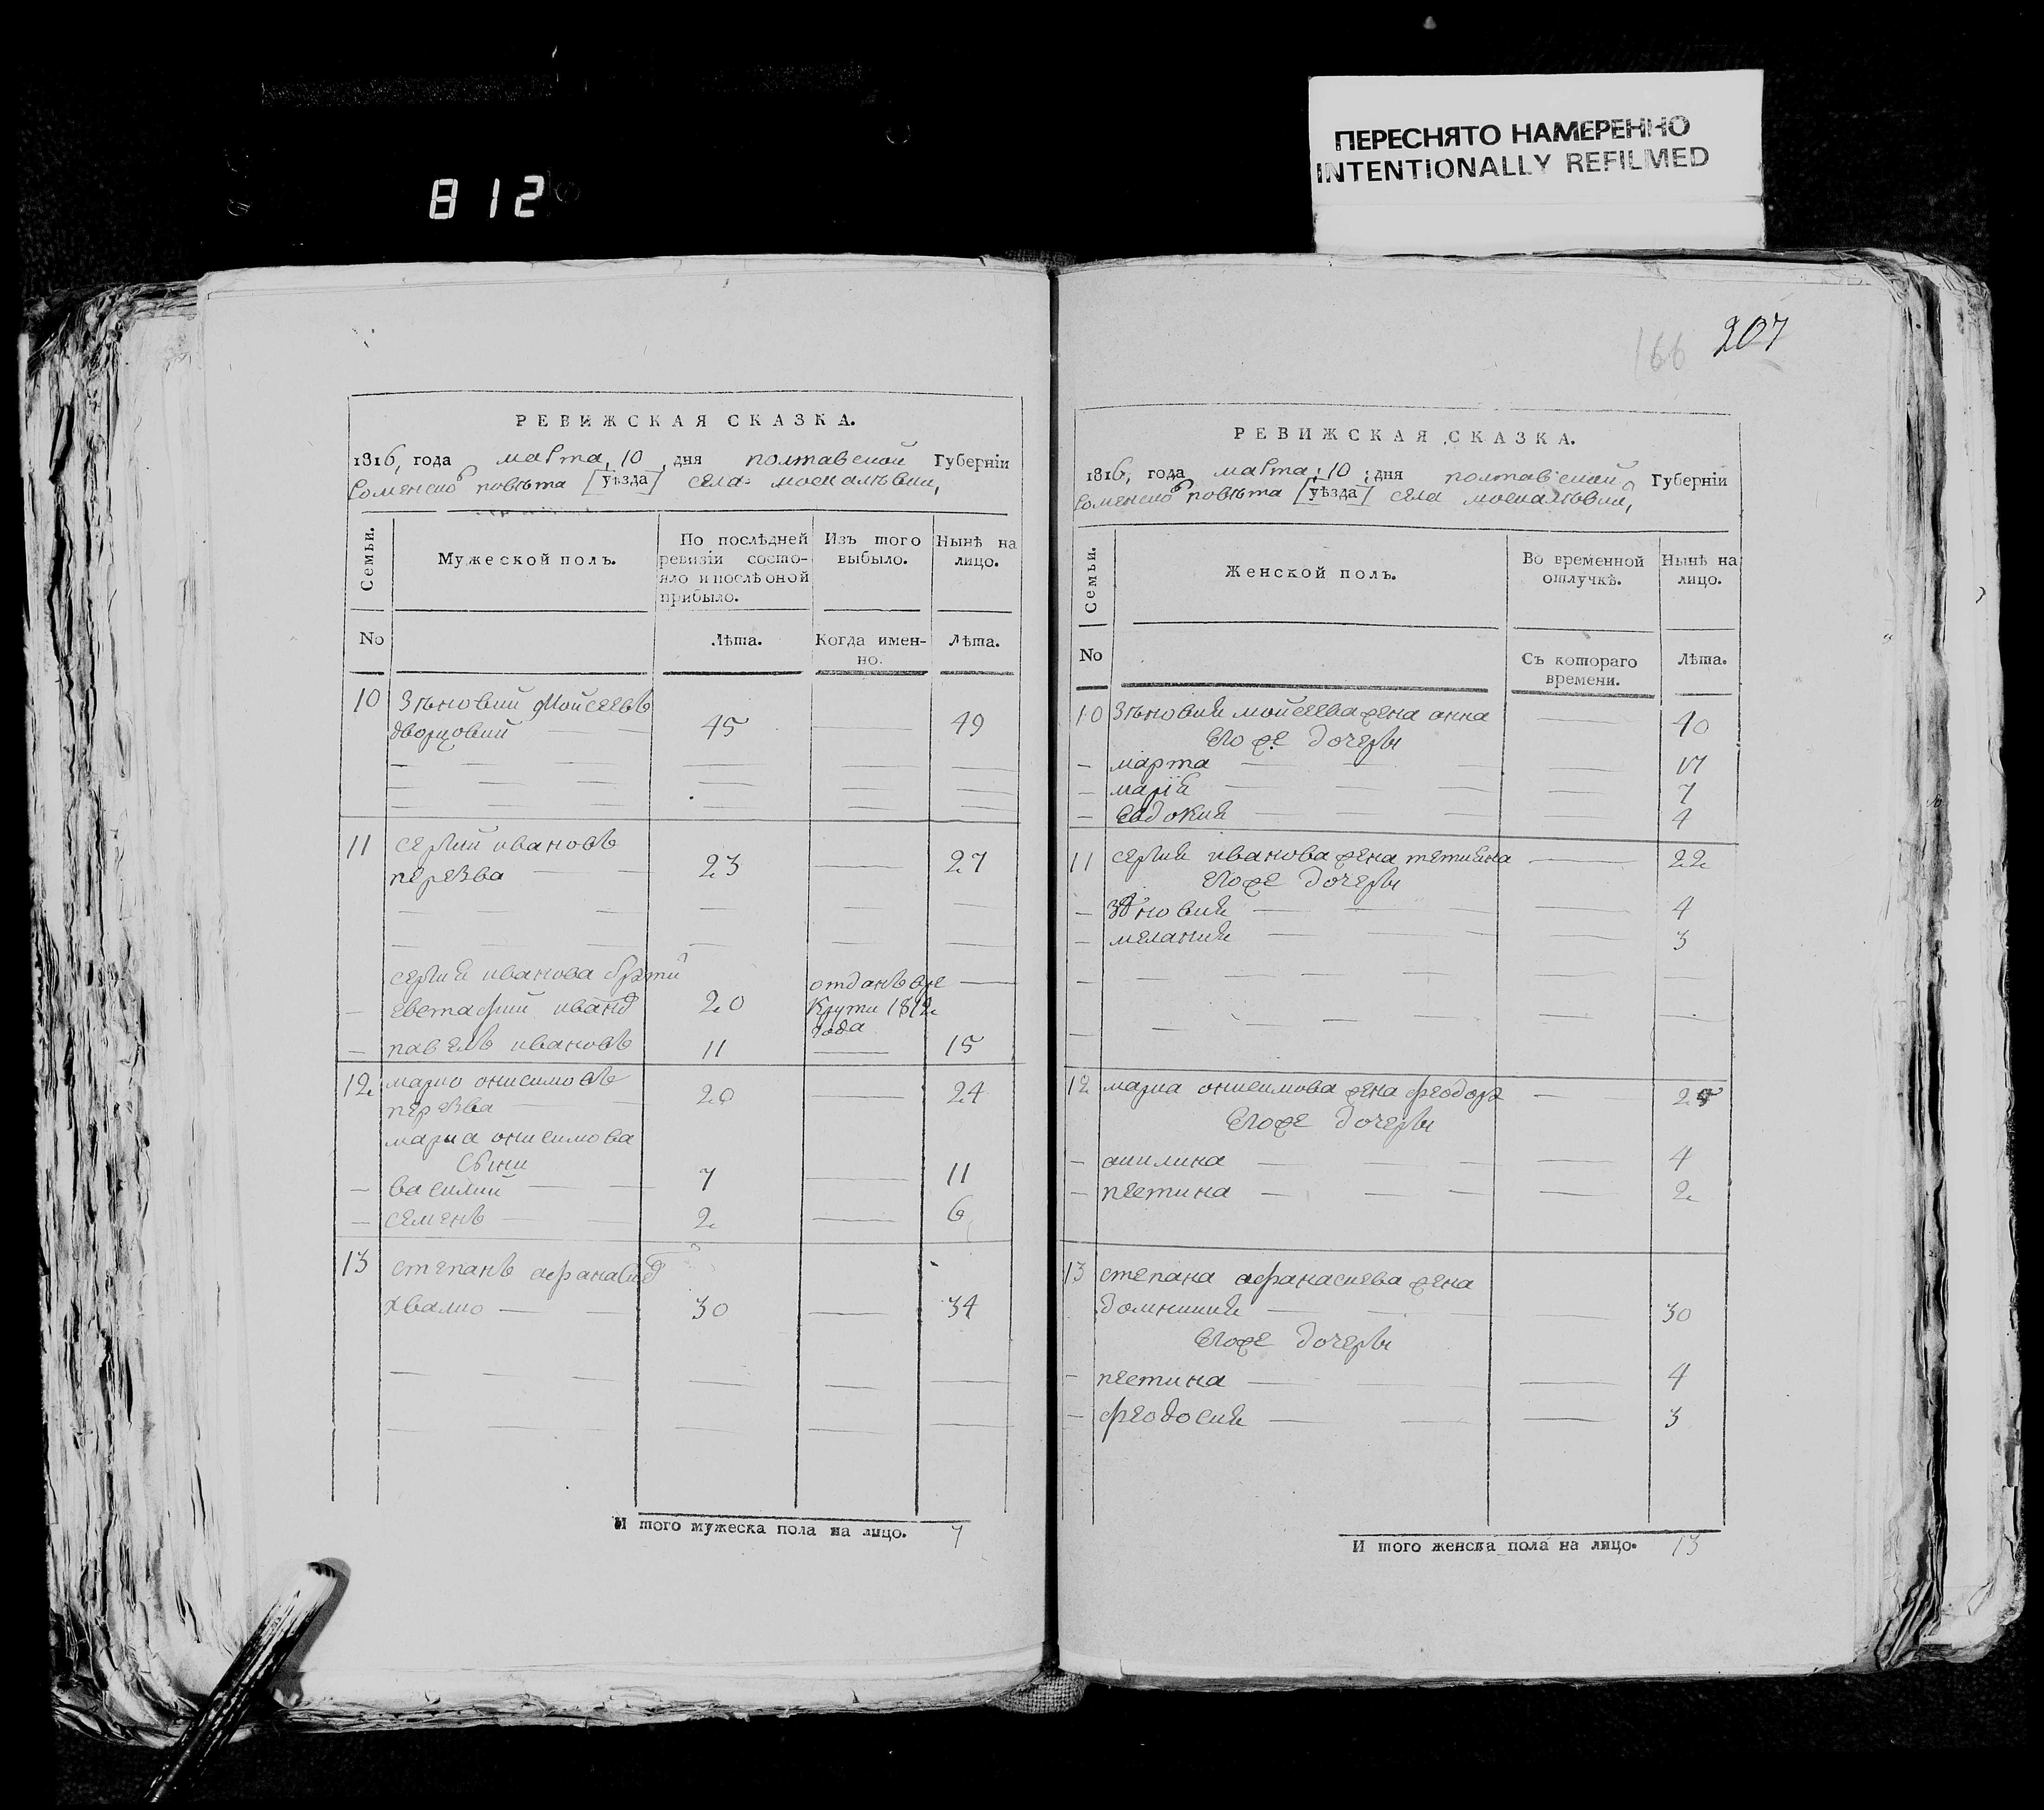 ПЕРЕСНЯТО НАМЕРЕННО
INTENTIONALLY REFILMED
812
РЕВИЖСКАЯ СКАЗКА.
1816, года марта, 10, дня полтавской Губерніи
роменско повѣта [уѣзда] села москалювки,
Семьи. Мужеской полъ. По послѣдней ревизіи состояло и послѣ оной прибыло. Изъ того выбыло. Нынѣ на лицо.
No Лѣта. Когда именно. Лѣта.
10 Зѣновий Мойсеевъ
дворцовий 45 49
11 сергий ивановъ
перезва 23 27
сергия иванова братия отданъ вре
евстафий иванов 20 крути 1812
года
павелъ ивановъ 11 15
12 марко онисимовъ 20 24
перезва
марка онисимова
сыни
василий 7 11
семенъ 2 6
13 степанъ афанасиев
хвалко 30 34
И того мужеска пола на лицо. 7
166 207
РЕВИЖСКАЯ СКАЗКА.
1816, года марта; 10; дня полтавской Губерніи
роменско повѣта [уѣзда] села москалювки,
Семьи. Женской полъ. Во временной отлучкѣ. Нынѣ на лицо.
No Съ котораго времени. Лѣта.
10 Зѣновия мойсеева жена анна 40
его же дочеры
марта 17
мария 7
евдокия 4
11 сергия иванова жена тетияна 22
его же дочеры
зѣновия 4
мелания 3
12 марка онисимова жена феодора
его же дочеры
акилина 4
пестина 2
13 степана афанасиева жена
домникия 30
его же дочеры
пестина 4
феодосия 3
И того женска пола на лицо. 13